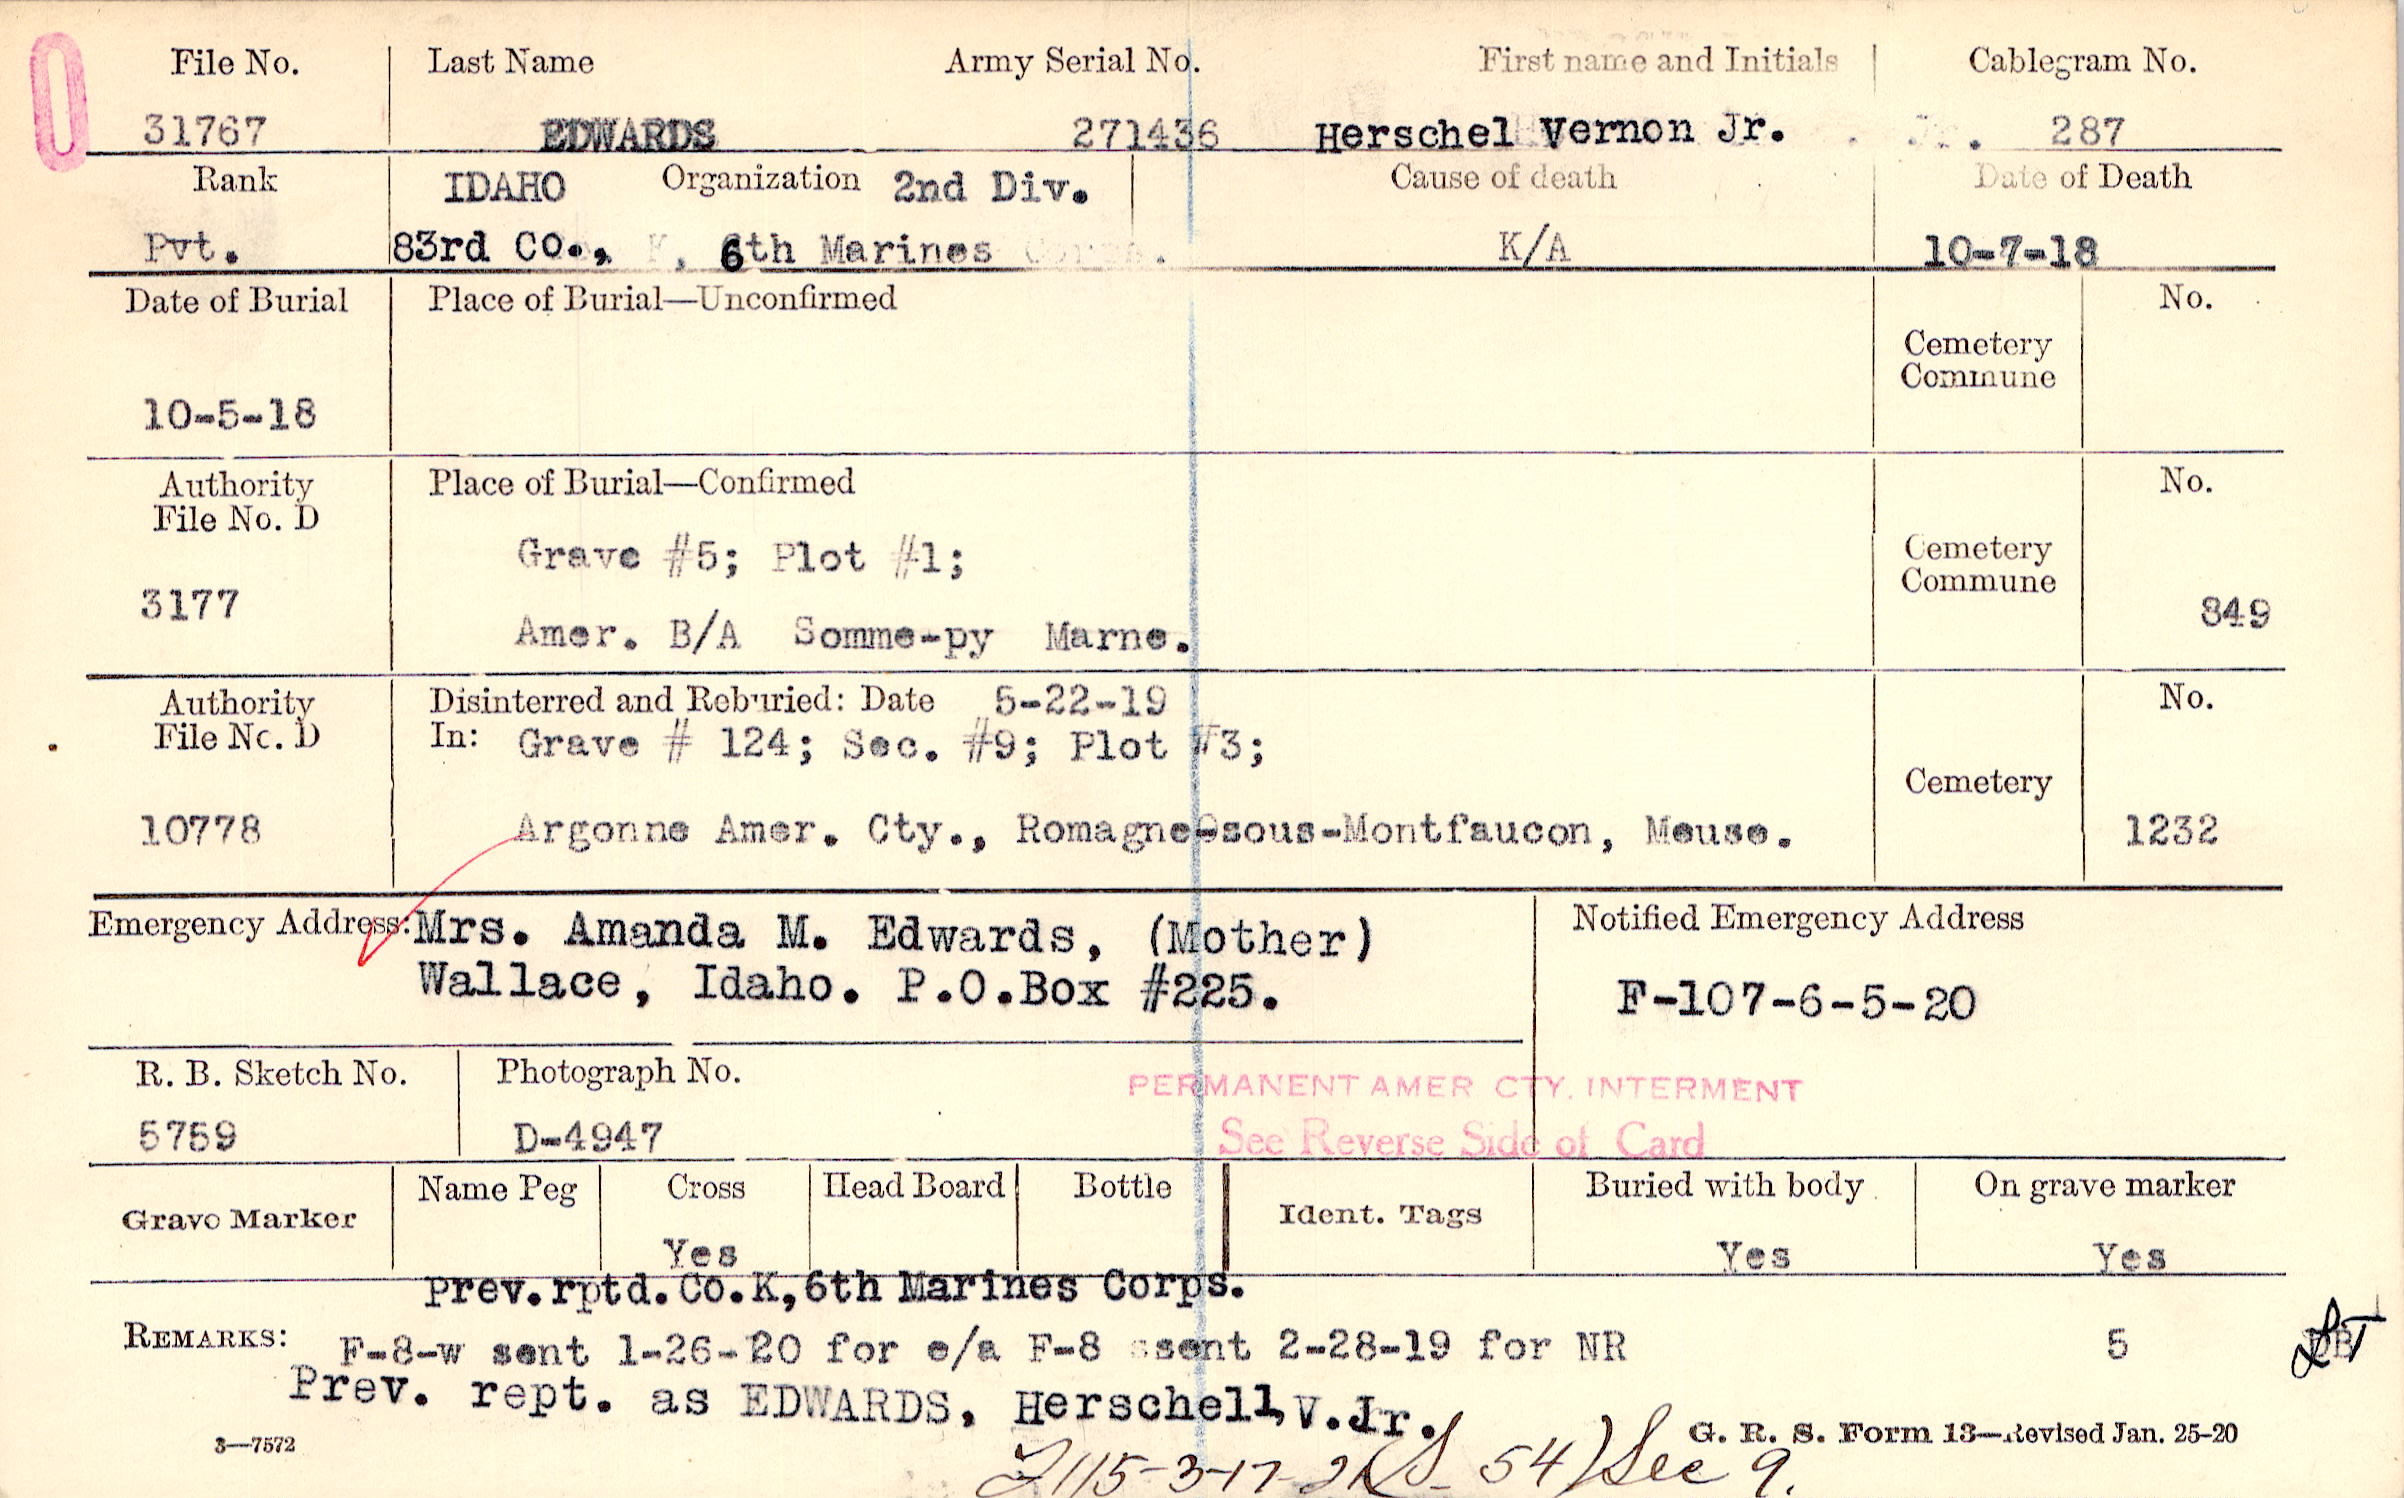 File No. Last Name Army Serial No. First name and Initials Cablegram No.
31767 EDWARDS 271436 Herschel Vernon Jr. 287
Rank IDAHO Organization 2nd Div. Cause of death Date of Death
Pvt. 83rd Co., 6th Marines K/A 10-7-18
Date of Burial Place of Burial—Unconfirmed No.
Cemetery
Commune
10-5-18
Authority Place of Burial—Confirmed No.
File No. D
Grave #5; Plot #1;
Cemetery
Commune
3177 849
Amer. B/A Somme-py Marne.
Authority Disinterred and Reburied: Date 5-22-19 No.
File No. D In: Grave # 124; Sec. #9; Plot #3;
Cemetery
10778 Argonne Amer. Cty., Romagne-sous-Montfaucon, Meuse. 1232
Emergency Address: Mrs. Amanda M. Edwards, (Mother) Notified Emergency Address
Wallace, Idaho. P.O.Box #225. F-107-6-5-20
R. B. Sketch No. Photograph No. PERMANENT AMER CTY. INTERMENT
5759 D-4947 See Reverse Side of Card
Name Peg Cross Head Board Bottle Buried with body On grave marker
Grave Marker Ident. Tags
Yes Yes Yes
Prev.rptd.Co.K,6th Marines Corps.
REMARKS: F-8-w sent 1-26-20 for e/a F-8 ssent 2-28-19 for NR 5
Prev. rept. as EDWARDS, Herschell,V.Jr.
3—7572 G. R. S. Form 13—Revised Jan. 25-20
54) Sec 9.